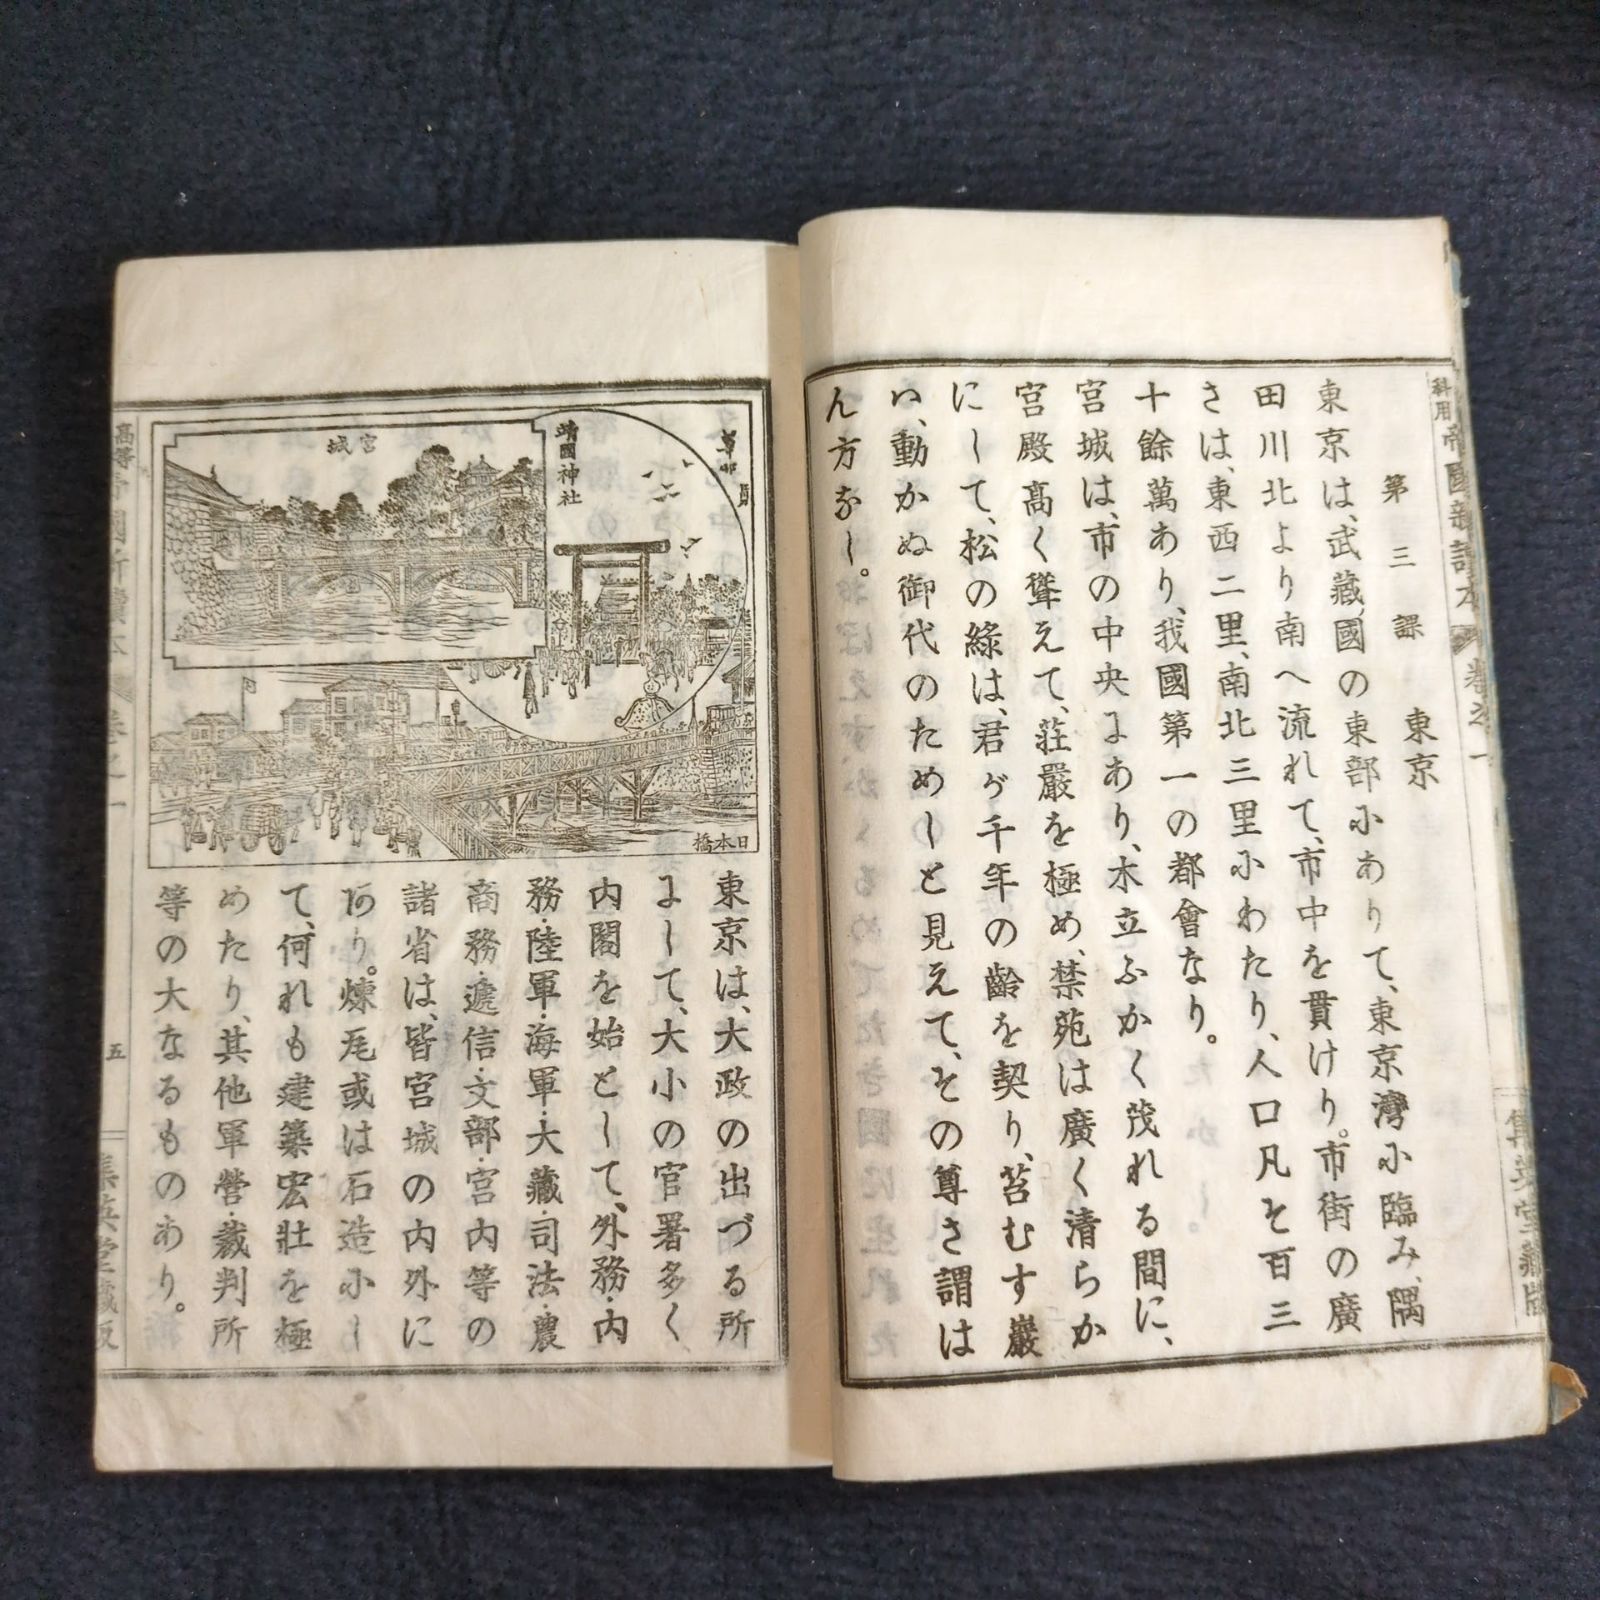 科用帝國新讀本 卷之一
集英堂藏版
第三課 東京
東京は、武藏國の東部にありて、東京灣に臨み、隅
田川北より南へ流れて、市中を貫けり。市街の廣
さは、東西二里、南北三里にわたり、人口凡そ百三
十餘萬あり、我國第一の都會なり。
宮城は、市の中央にあり、木立ふかく茂れる間に、
宮殿高く聳えて、莊嚴を極め、禁苑は廣く清らか
にして、松の綠は、君が千年の齡を契り、苔むす巖
い、動かぬ御代のためしと見えて、その尊さ謂は
ん方なし。
宮城
靖國神社
日本橋
東京は、大政の出づる所
にして、大小の官署多く
内閣を始として、外務・内
務・陸軍・海軍・大藏・司法・農
商務・遞信・文部・宮内等の
諸省は、皆宮城の内外に
在り。煉瓦或は石造にし
て、何れも建築宏壯を極
めたり、其他軍營・裁判所
等の大なるものあり。
高等帝國新讀本 卷之一
五
集英堂藏版